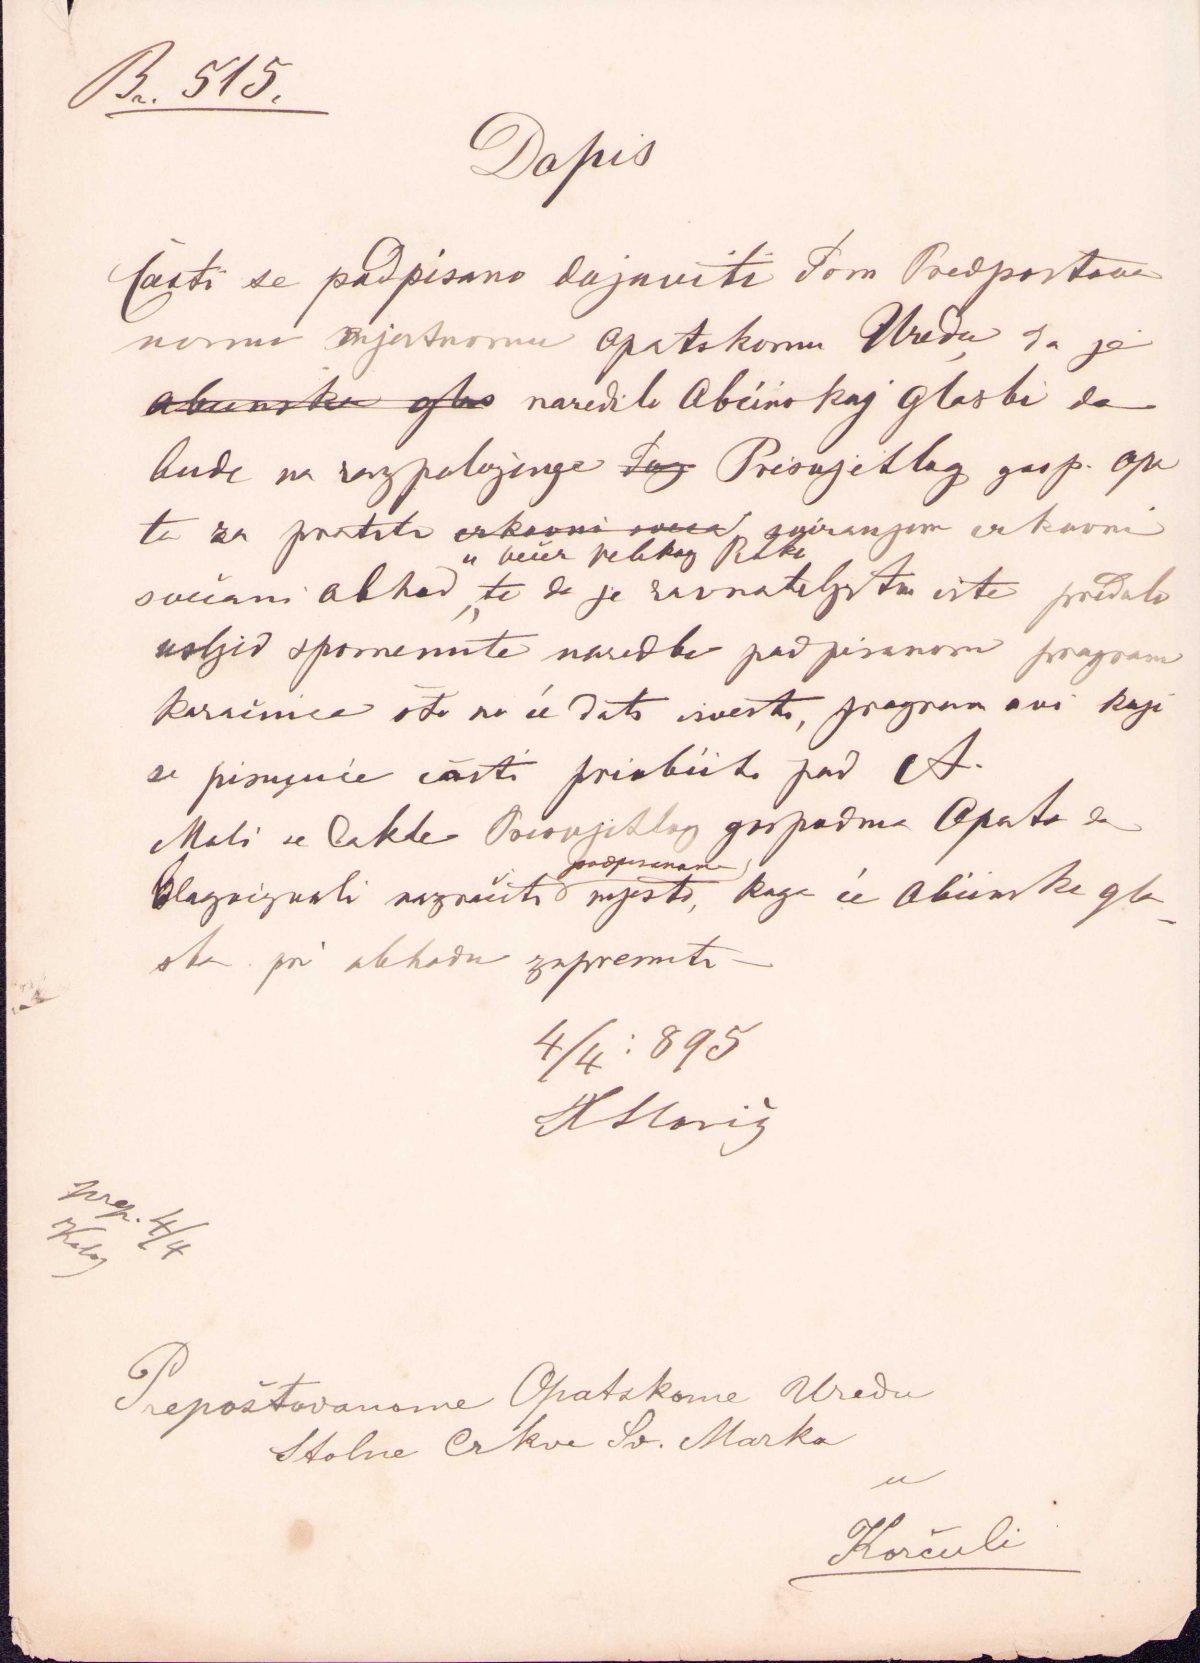 Br. 515.
Dopis
Časti se podpisano dojaviti Tom Predpostova
nomu mjestnomu Opatskomu Uredu da je
obcinska glas naredilo Obćinskoj glasbi da
bude na razpoloženje Tog Presvjetlog gosp. Opa
ta za pratiti crkovni sveca, sviranjem crkovni
u večer Velikog Petka
svečani obhod, te da je ravnateljstvo iste predalo
usljed spomenute naredbe podpisanom program
koračnica što no će dati izvesti, program ovi koji
se pisujuće časti priobćiti pod A.
Moli se dakle Presvjetlog gospodina Opata da
podpisanom
blagoizvoli naznačiti mjesto, koga će Obćinska gla-
sba pri obhodu zapremiti —
4/4 : 895
prep. 4/4
Prepoštovanome Opatskome Uredu
Stolne Crkve Sv. Marka
u
Korčuli